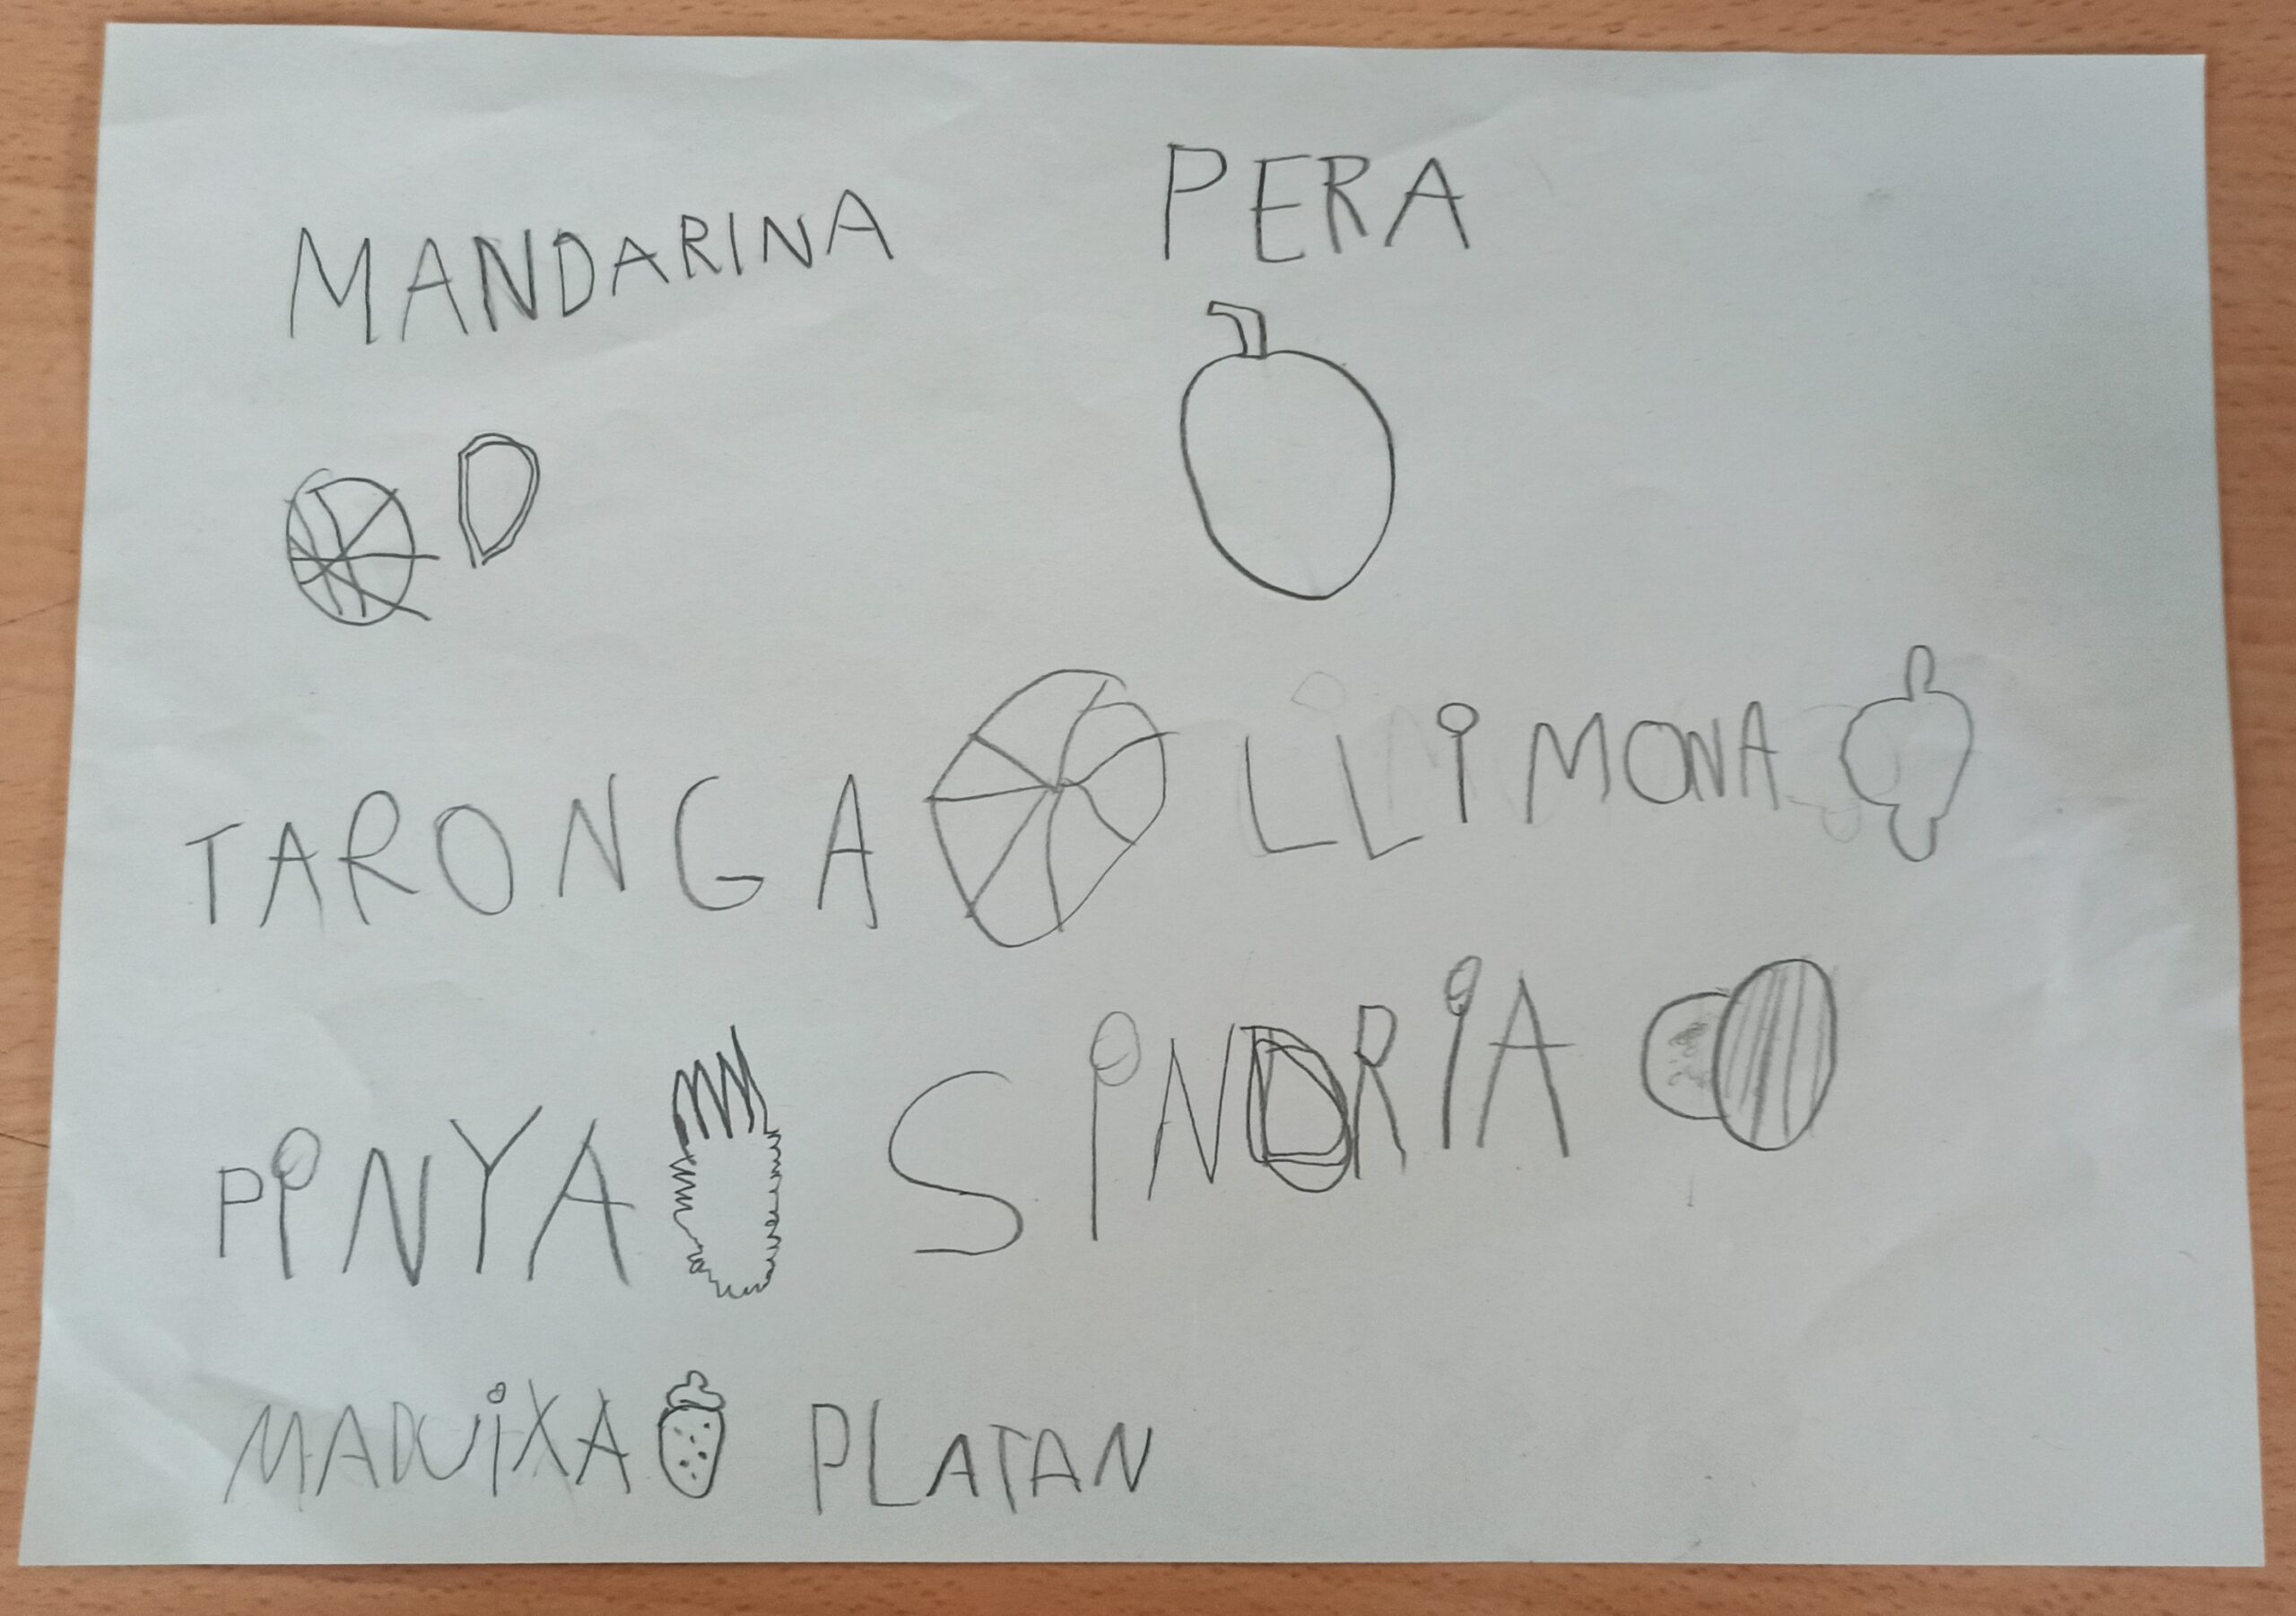 MANDARINA PERA
TARONGA LLiMONA
PiNYA SiNDRiA
MADUiXA PLATAN